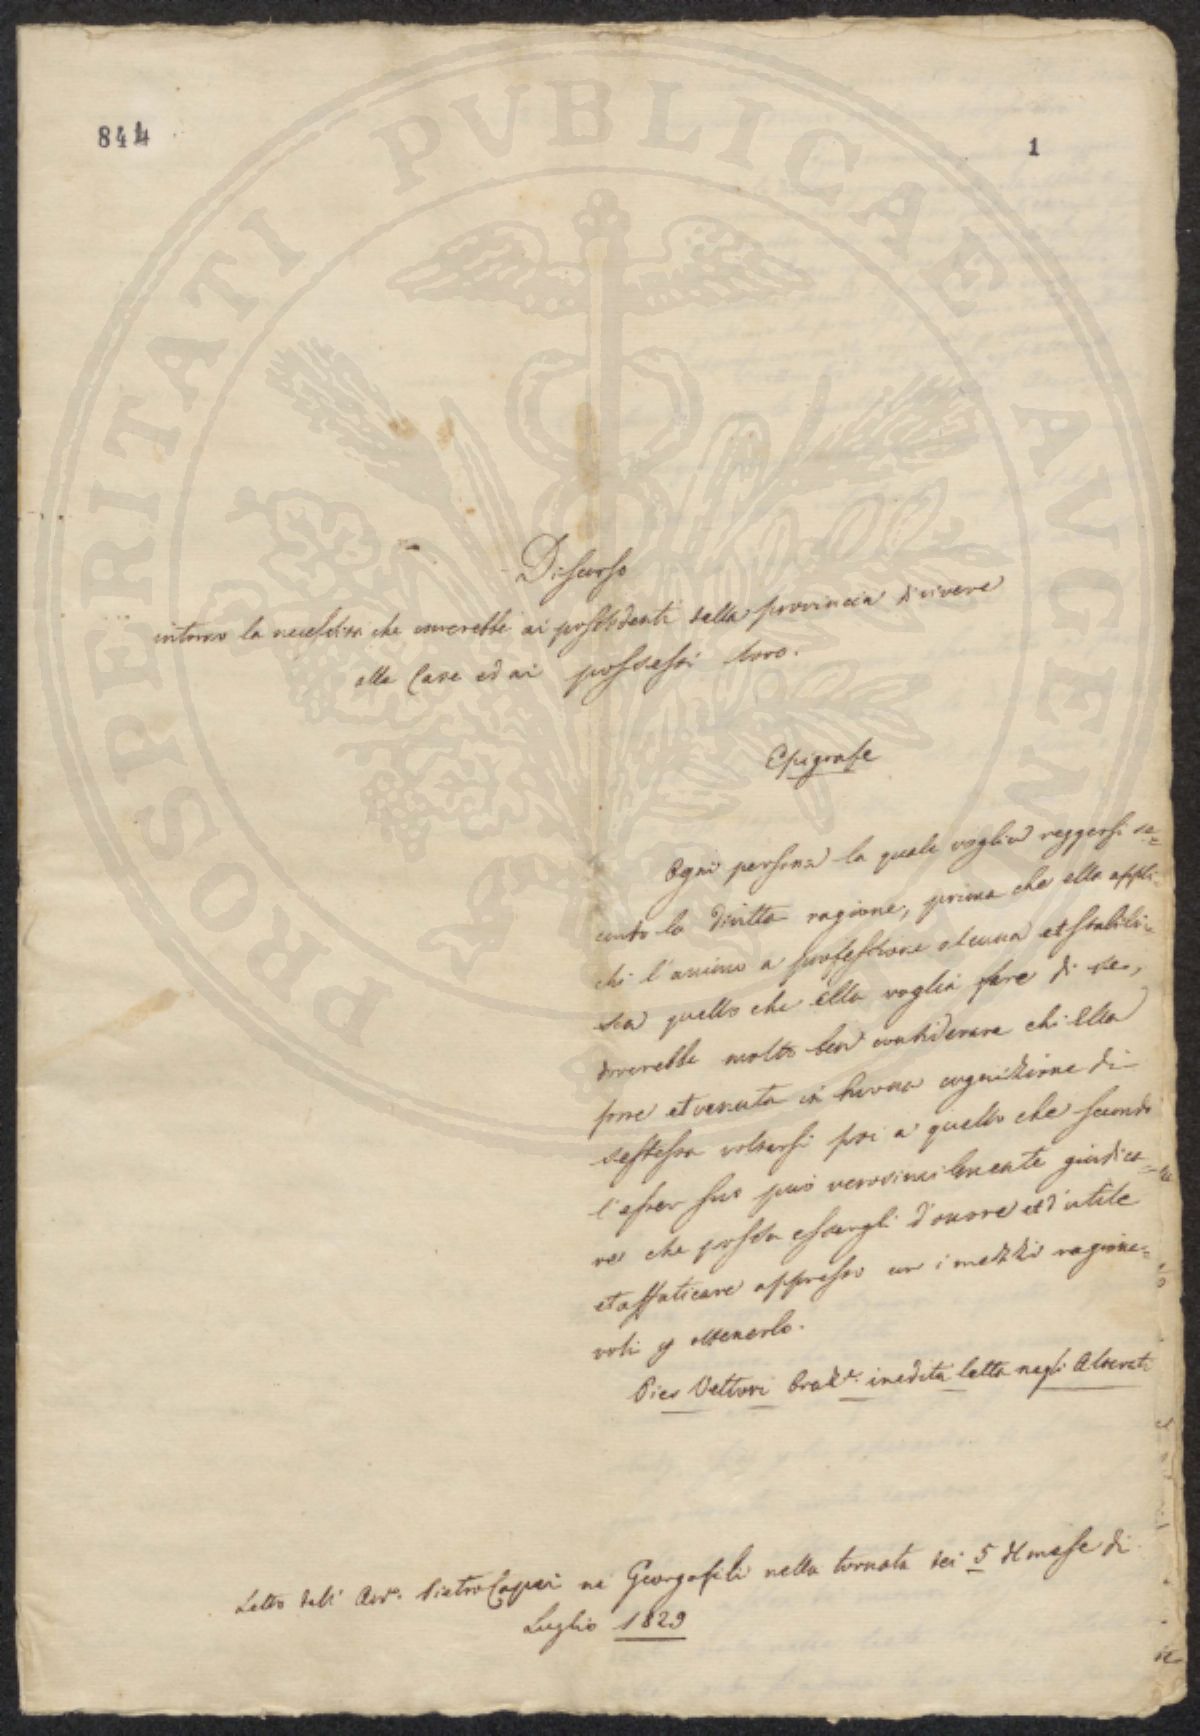 844
1
PROSPERITATI PVBLICAE AVGENDAE
Discorso
intorno la necessità che correrebbe ai possidenti della provincia di vivere
alle Case ed ai possessi loro.
Epigrafe
Ogni persona la quale voglia reggersi se=
condo la diritta ragione, prima che ella appli=
chi l'animo a professione alcuna et stabili=
sca quello che ella voglia fare di se,
doverebbe molto ben considerare chi ella
fosse et venuta in buona cognizione di
sestessa voltarsi poi a quello che secondo
l'esser suo può verosimilmente giudica=
re che possa essergli d'onore et d'utile
et affaticare appresso con i mezzi ragione=
voli p ottenerlo.
Pier Vettori Oraze. inedita letta negli Alterati
Letto dall' Avv. Pietro Capei ne Georgofili nella tornata dei 5 del mese di
Luglio 1829